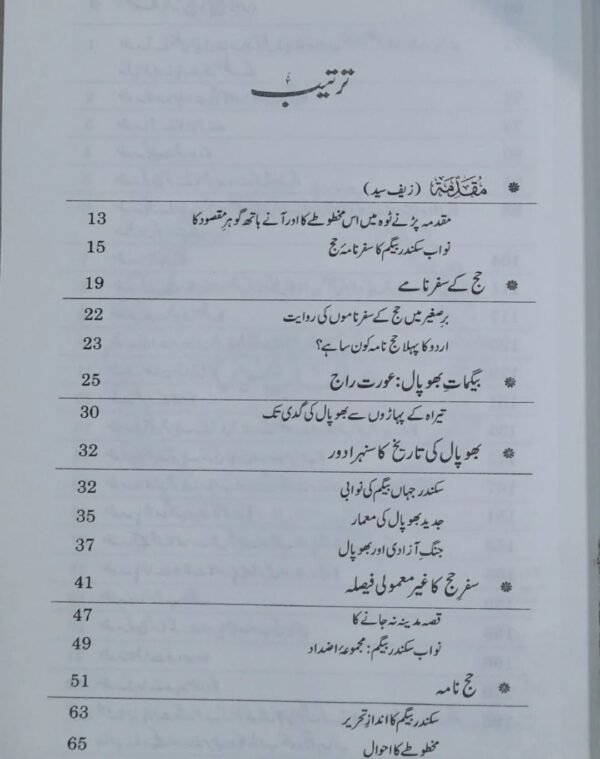 ترتیب
* مُقَدِّمَۃ (زیف سید)
مقدمہ پڑنے ٹوہ میں اس مخطوطے کا اور آنے ہاتھ گوہرِ مقصود کا 13
نواب سکندر بیگم کا سفرنامۂ حج 15
* حج کے سفرنامے 19
برصغیر میں حج کے سفرناموں کی روایت 22
اردو کا پہلا حج نامہ کون سا ہے؟ 23
* بیگماتِ بھوپال: عورت راج 25
تیراہ کے پہاڑوں سے بھوپال کی گدی تک 30
* بھوپال کی تاریخ کا سنہرا دور 32
سکندر جہاں بیگم کی نوابی 32
جدید بھوپال کی معمار 35
جنگِ آزادی اور بھوپال 37
* سفرِ حج کا غیر معمولی فیصلہ 41
قصہ مدینہ نہ جانے کا 47
نواب سکندر بیگم: مجموعۂ اضداد 49
* حج نامہ 51
سکندر بیگم کا اندازِ تحریر 63
مخطوطے کا احوال 65